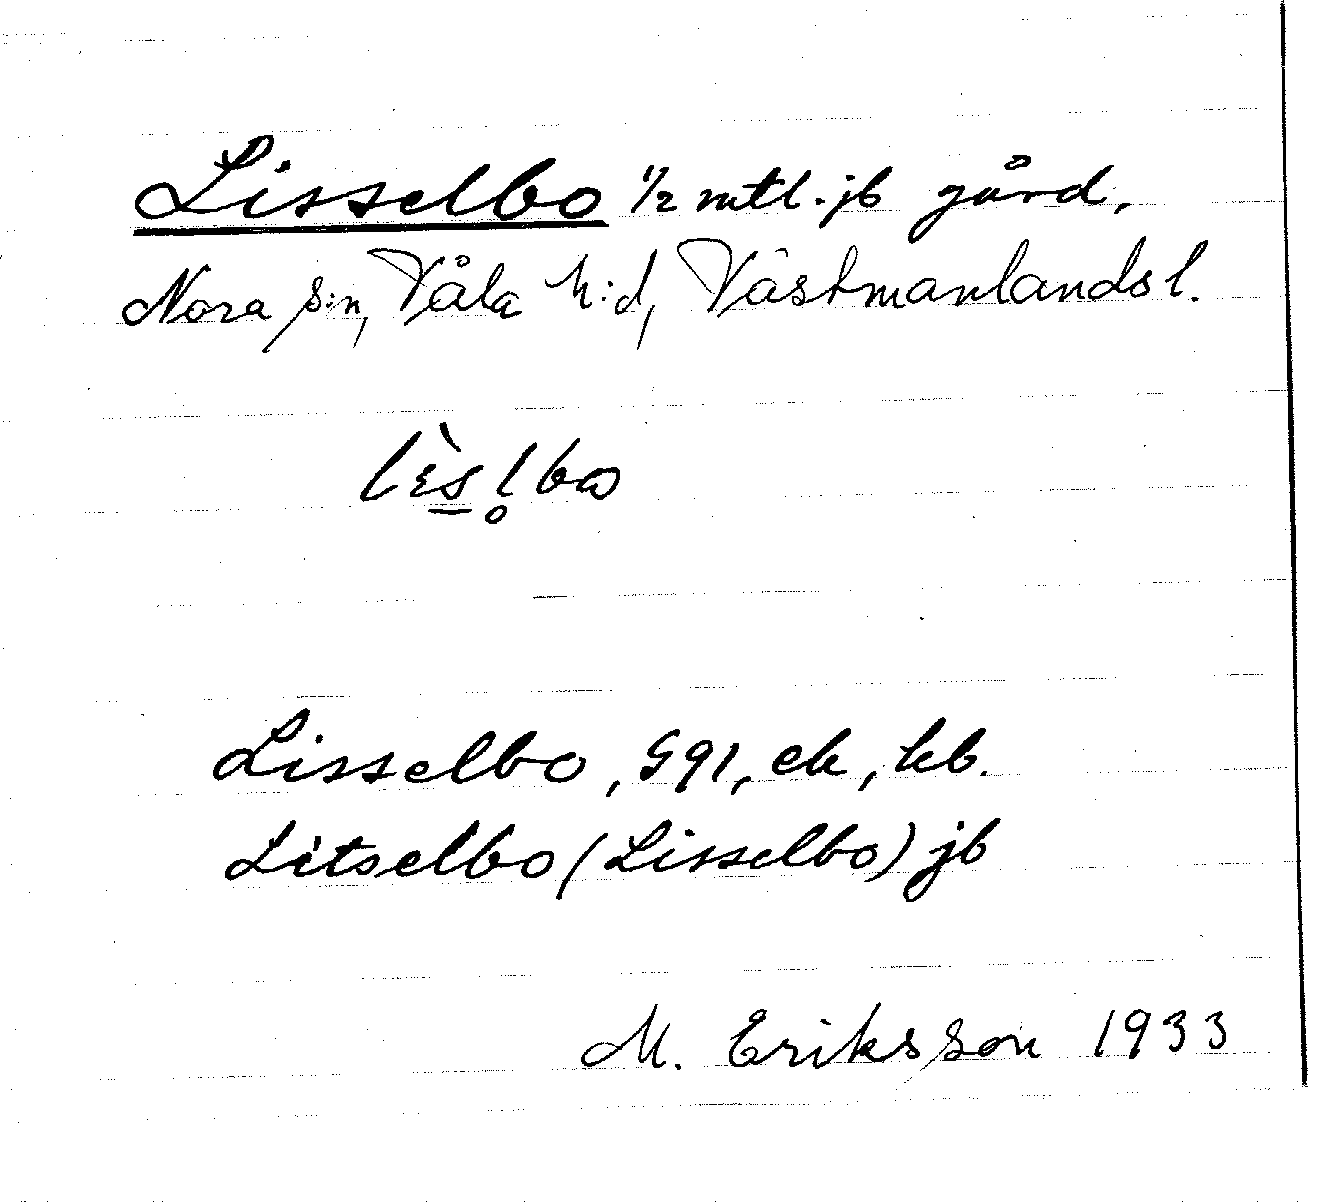 Lisselbo 1/2 mtl. jb gård,
Nora s:n, Våla h:d, Västmanlands l.
lɛ̀s̲l̥bo
Lisselbo, G91, ek, kb.
Litselbo (Lisselbo) jb
M. Eriksson 1933